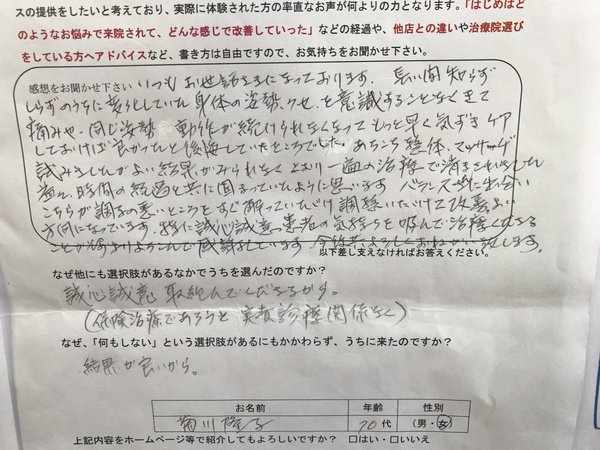 スの提供をしたいと考えており、実際に体験された方の率直なお声が何よりの力となります。「はじめはど
のようなお悩みで来院されて、どんな感じで改善していった」などの経過や、他店との違いや治療院選び
をしている方へアドバイスなど、書き方は自由ですので、お気持ちをお聞かせ下さい。
感想をお聞かせ下さい いつもお世話さまになっております。長い間知らず
しらずのうちに変化していた身体の姿勢、クセ、を意識することなくきて
痛みや、同じ姿勢、動作が続けられなくなってもっと早く気ずきケア
しておけば良かったと後悔していたところでした。あちこち整体、マッサージ
試みましたがよい結果がみられなく
時間の経過と共に固まっていたように思います。バランス
こちらが調子の悪いところをすぐ解っていただけ調整いただけて改善よい
方向になっています。特に誠心誠意、患者の気持ちを汲んで治療くださる
感謝しています。今後共よろしくおねがい致します。
以下差し支えなければお答えください。
なぜ他にも選択肢があるなかでうちを選んだのですか?
誠心誠意 取組んでくださるから。
(保険治療であろうと実費診療関係なく)
なぜ、「何もしない」という選択肢があるにもかかわらず、うちに来たのですか?
結果が良いから。
お名前 年齢 性別
菊川 70代 (男・女)
上記内容をホームページ等で紹介してもよろしいですか? □はい・□いいえ